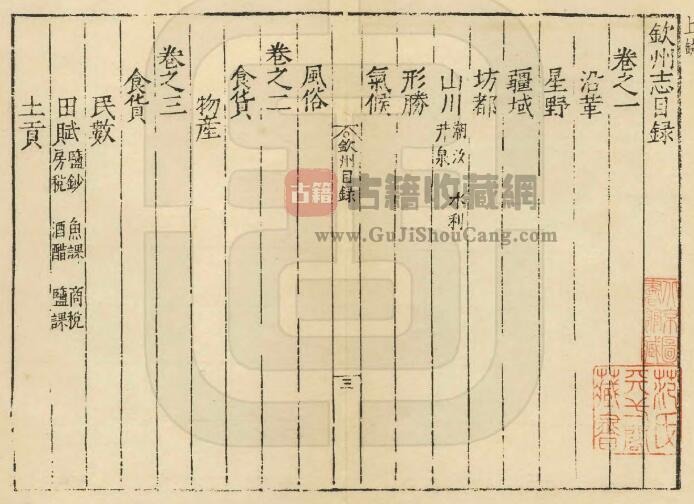 欽州志目録
卷之一
沿革
星野
疆域
坊都
山川 潮汐 水利 井泉
形勝
氣候
欽州目録
三
風俗
卷之二
食貨
物産
卷之三
食貨
民數
田賦 鹽鈔 魚課 商稅 房稅 酒醋 鹽課
土貢
古籍 古籍收藏網
www.GuJiShouCang.com
范氏天一閣藏書